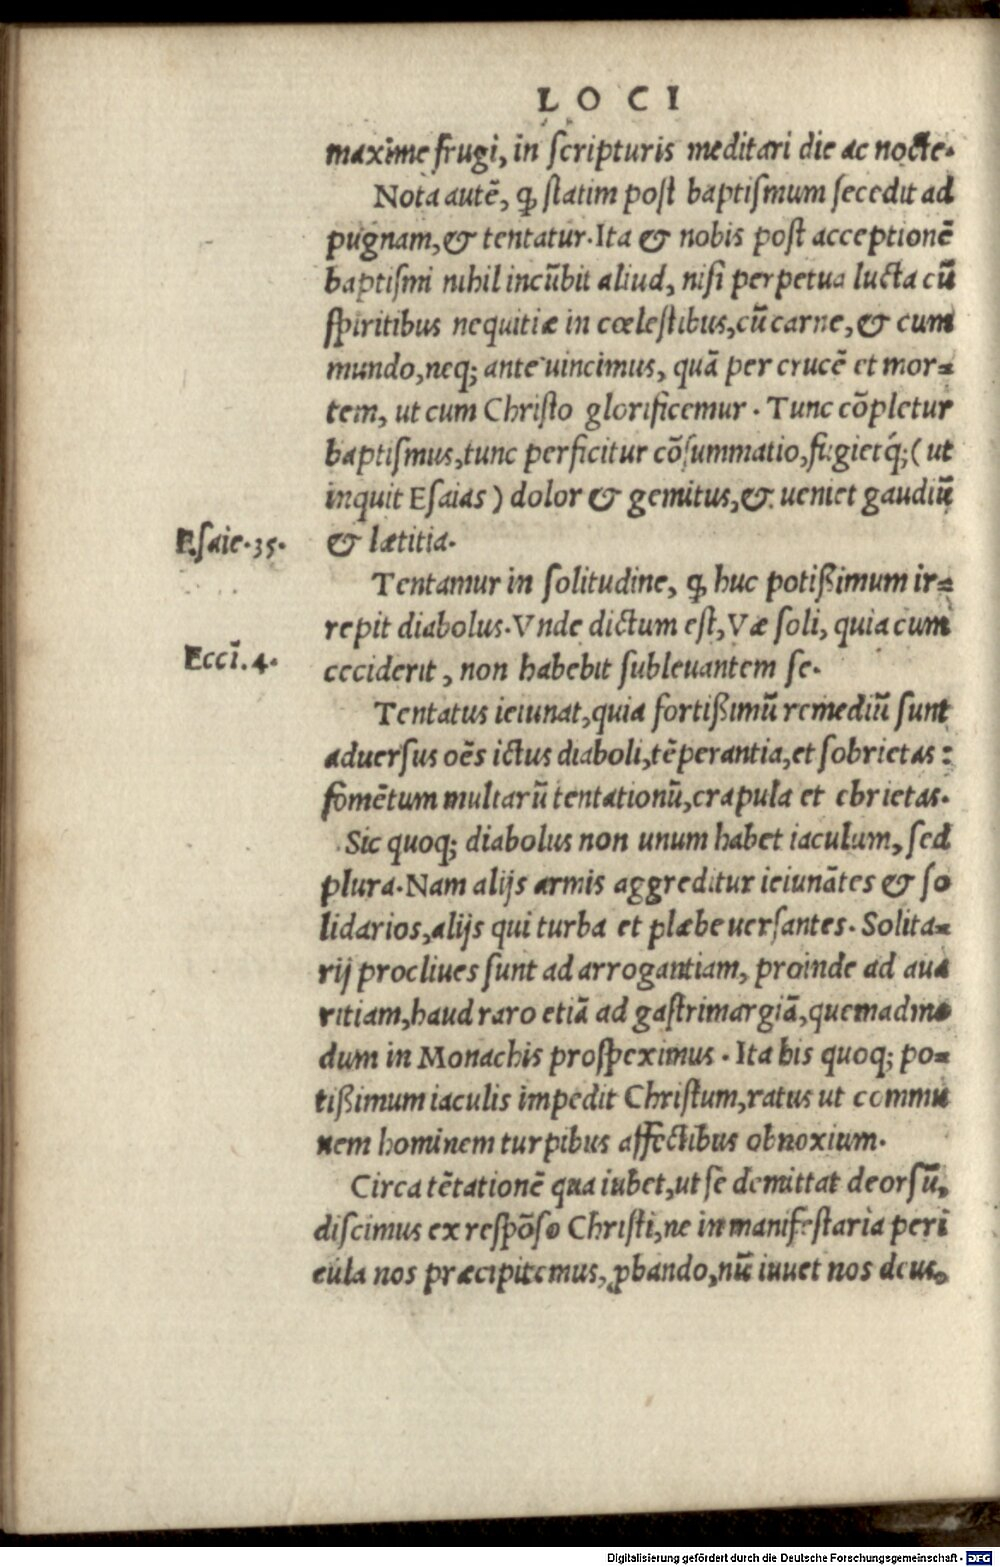 LOCI
maxime frugi, in ſcripturis meditari die ac nocte.
Nota autē, ꝙ ſtatim poſt baptiſmum ſecedit ad
pugnam, & tentatur. Ita & nobis poſt acceptionē
baptiſmi nihil incūbit aliud, niſi perpetua lucta cū
ſpiritibus nequitiæ in cœleſtibus, cū carne, & cum
mundo, neq; ante uincimus, quā per crucē et mor=
tem, ut cum Chriſto glorificemur. Tunc cōpletur
baptiſmus, tunc perficitur cōſummatio, fugietq́; (ut
inquit Eſaias) dolor & gemitus, & ueniet gaudiū
Eſaie. 35. & lætitia.
Tentamur in ſolitudine, ꝙ huc potißimum ir=
repit diabolus. Vnde dictum eſt, Væ ſoli, quia cum
Eccī. 4. ceciderit, non habebit ſubleuantem ſe.
Tentatus ieiunat, quia fortißimū remediū ſunt
aduerſus oēs ictus diaboli, tēperantia, et ſobrietas:
fomētum multarū tentationū, crapula et ebrietas.
Sic quoq; diabolus non unum habet iaculum, ſed
plura. Nam alijs armis aggreditur ieiunātes & ſo
lidarios, alijs qui turba et plæbe uerſantes. Solita=
rij procliues ſunt ad arrogantiam, proinde ad aua
ritiam, haud raro etiā ad gaſtrimargiā, quemadmo
dum in Monachis proſpeximus. Ita his quoq; po=
tißimum iaculis impedit Chriſtum, ratus ut commu
nem hominem turpibus affectibus obnoxium.
Circa tētationē qua iubet, ut ſe demittat deorſū,
diſcimus ex reſpōſo Chriſti, ne in manifeſtaria peri
cula nos præcipitemus, ꝓbando, nū iuuet nos deus,
Digitalisierung gefördert durch die Deutsche Forschungsgemeinschaft - DFG